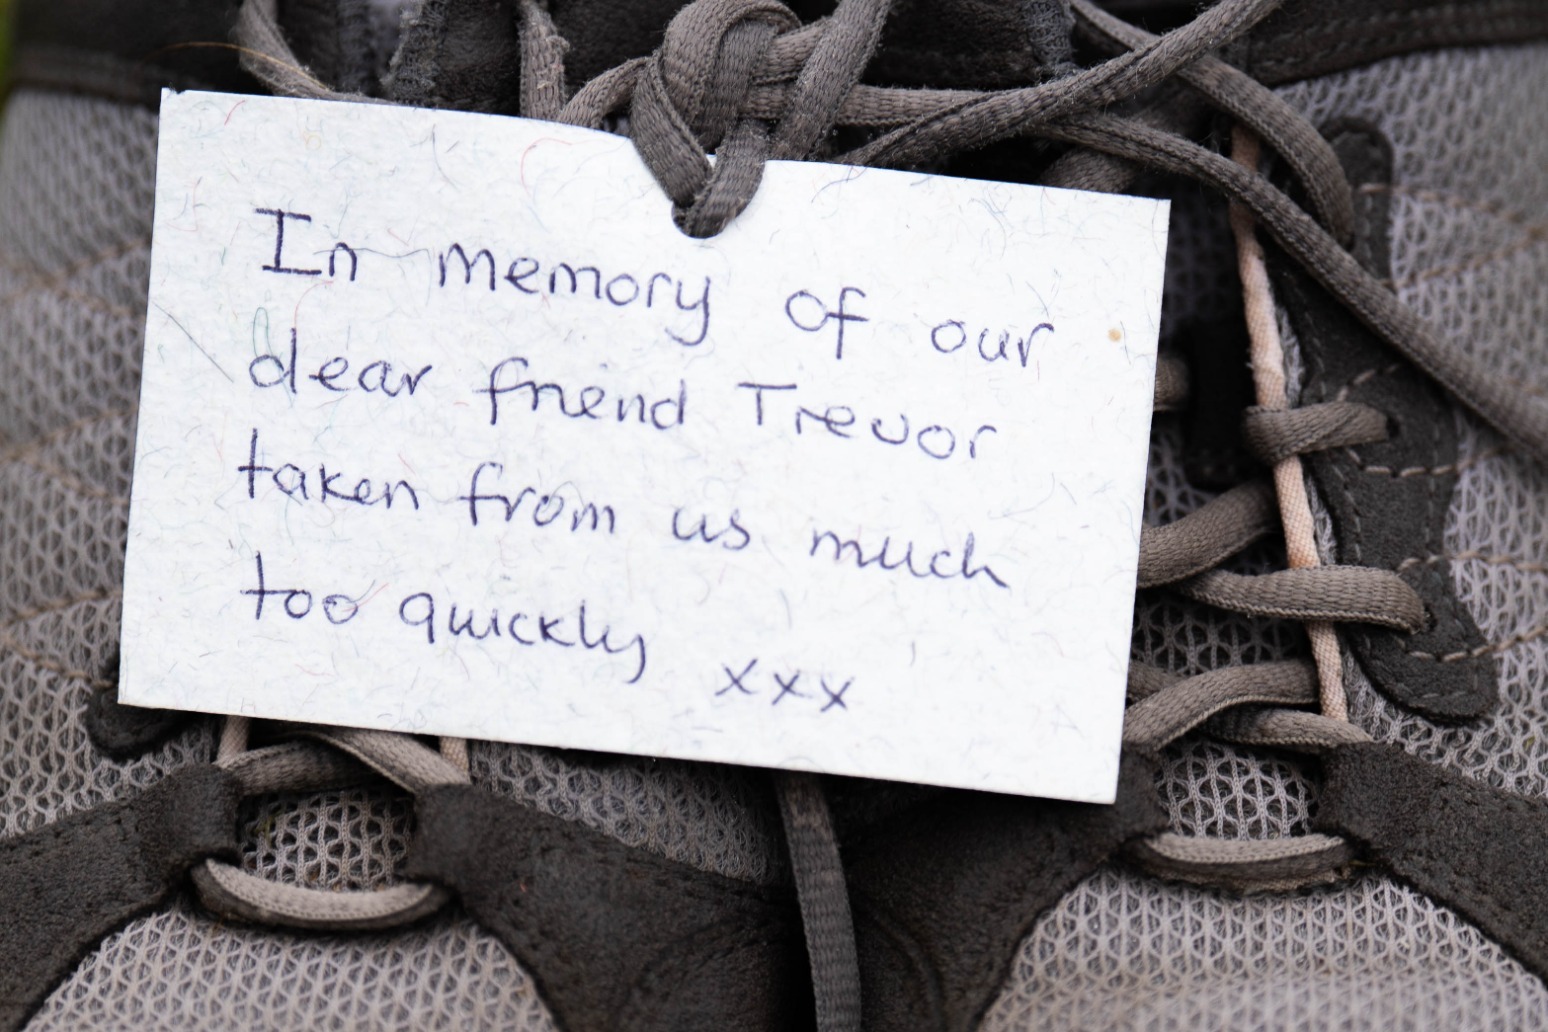 In memory of our
dear friend Trevor
taken from us much
too quickly xxx